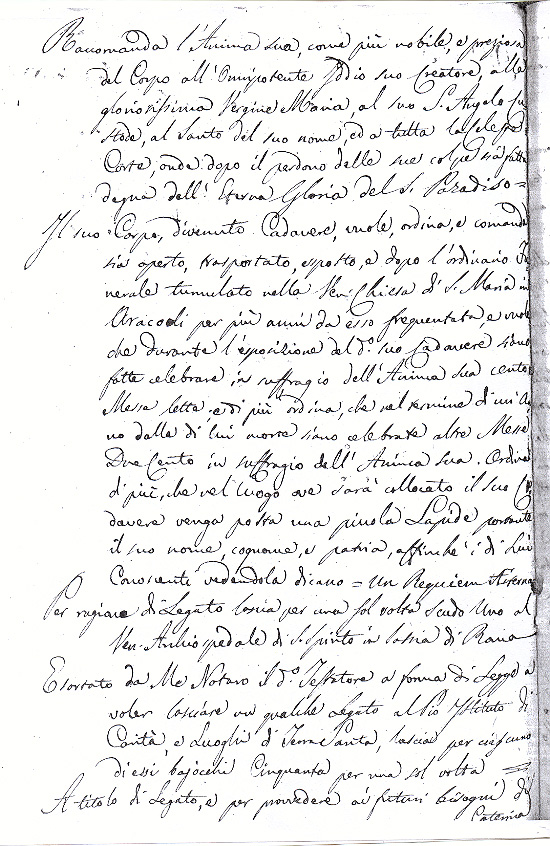 Raccomanda l'Anima sua, come più nobile, e preziosa
del Corpo all'Omnipotente Iddio suo Creatore, alla
gloriosissima Vergine Maria, al suo S. Angelo Cu
stode, al Santo del suo nome, ed a tutta la Celeste
Corte, onde dopo il perdono delle sue colpe sia fatta
degna dell'Eterna Gloria del S. Paradiso =
Il suo Corpo, divenuto Cadavere, vuole, ordina, e comanda
sia aperto, trasportato, esposto, e dopo l'ordinario Fu
nerale tumulato nella Ven. Chiesa di S. Maria in
Aracoeli per più anni da esso frequentata, e vuole
che durante l'esposizione del d.º suo Cadavere siano
fatte celebrare in suffragio dell'Anima sua cento
Messe lette e di più ordina, che nel termine di un'a
no dalla di lui morte siano celebrate altre Messe
Due Cento in suffragio dell'Anima sua. Ordina
di più, che nel luogo ove sarà collocato il suo Ca
davere venga posta una picola Lapide portante
il suo nome, cognome, e patria, affinchè i di Lui
Conoscenti vedendola dicano = Un Requiem Æterna
Per ragione di Legato lascia per una sol volta Scudo Uno al
Ven. Archiospedale di S. Spirito in Sassia di Roma
Esortato da Me Notaro il d.º Testatore a forma di Legge a
voler lasciare un qualche Legato al Pio Istituto di
Carità, e Luoghi di Terra Santa, lascia per ciascuno
di essi bajocchi Cinquanta per una sol volta =
A titolo di Legato, e per provvedere ai futuri bisogni di
Caterina